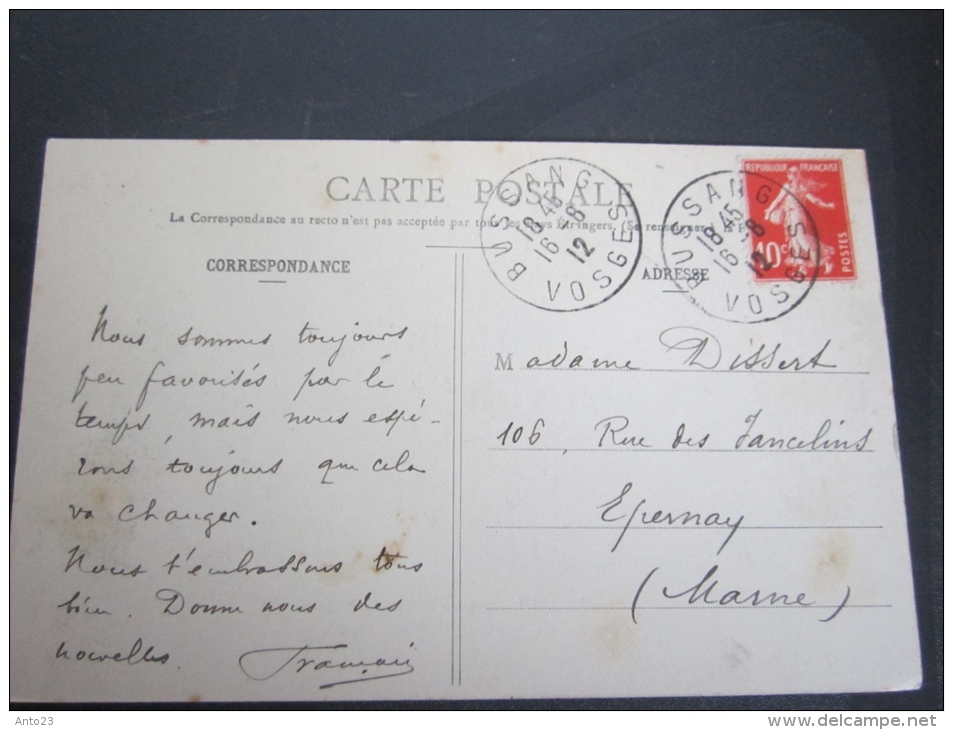 CARTE POSTALE
La Correspondance au recto n'est pas acceptée par tous les Pays Étrangers. (Se renseigner à la P
CORRESPONDANCE
ADRESSE
BUSSANG
18 45
16 - 8
12
VOSGES
BUSSANG
18 45
16 - 8
12
VOSGES
REPUBLIQUE FRANÇAISE
10 c
POSTES
Nous sommes toujours
peu favorisés par le
temps, mais nous espé-
rons toujours que cela
va changer.
Nous t'embrassons tous
bien. Donne nous des
nouvelles.
Madame Dissert
106, Rue des Jancelins
Epernay
(Marne)
Anto23